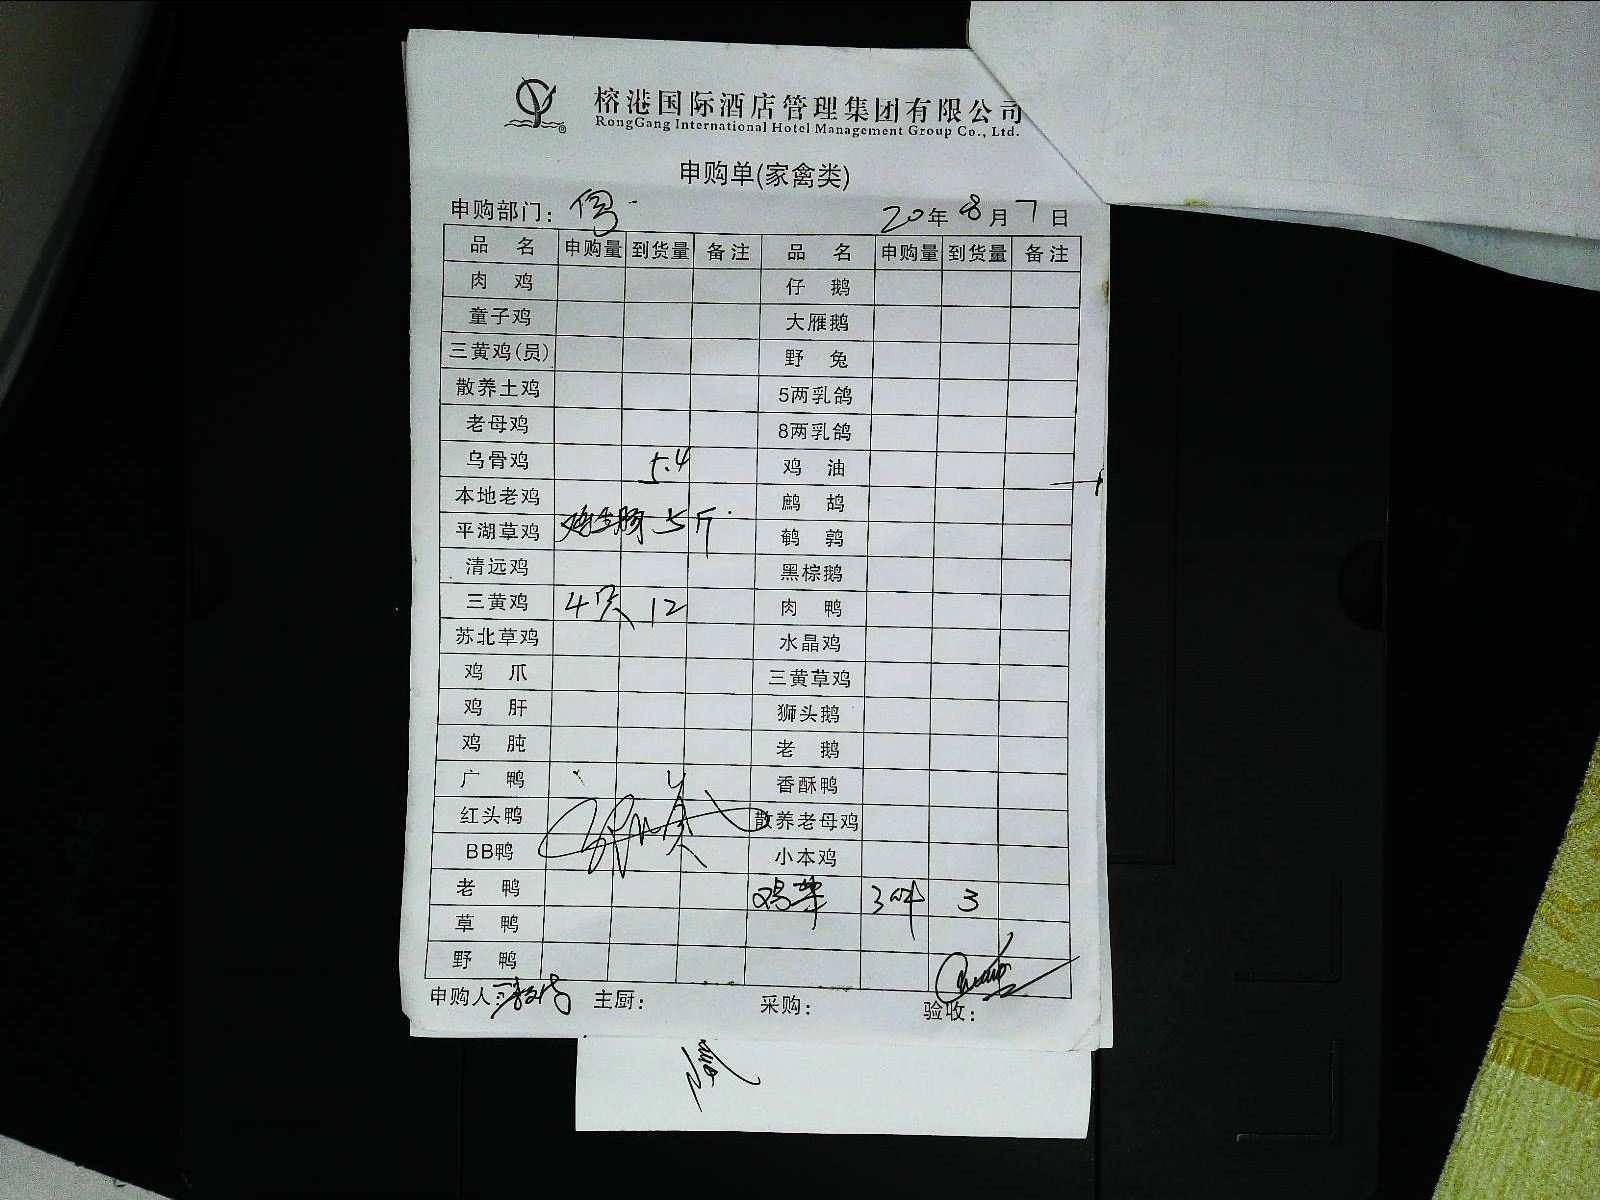 榕港国际酒店管理集团有限公司
RongGang International Hotel Management Group Co., Ltd.
申购单(家禽类)
申购部门： 20年 8月 7日
品 名 申购量 到货量 备注 品 名 申购量 到货量 备注
肉 鸡 仔 鹅
童子鸡 大雁鹅
三黄鸡(员) 野 兔
散养土鸡 5两乳鸽
老母鸡 8两乳鸽
乌骨鸡 5.4 鸡 油
本地老鸡 鹧 鸪
平湖草鸡 5斤 鹌 鹑
清远鸡 黑棕鹅
三黄鸡 4只 12 肉 鸭
苏北草鸡 水晶鸡
鸡 爪 三黄草鸡
鸡 肝 狮头鹅
鸡 肫 老 鹅
广 鸭 香酥鸭
红头鸭 散养老母鸡
BB鸭 小本鸡
老 鸭 3 3
草 鸭
野 鸭
申购人： 主厨： 采购： 验收：